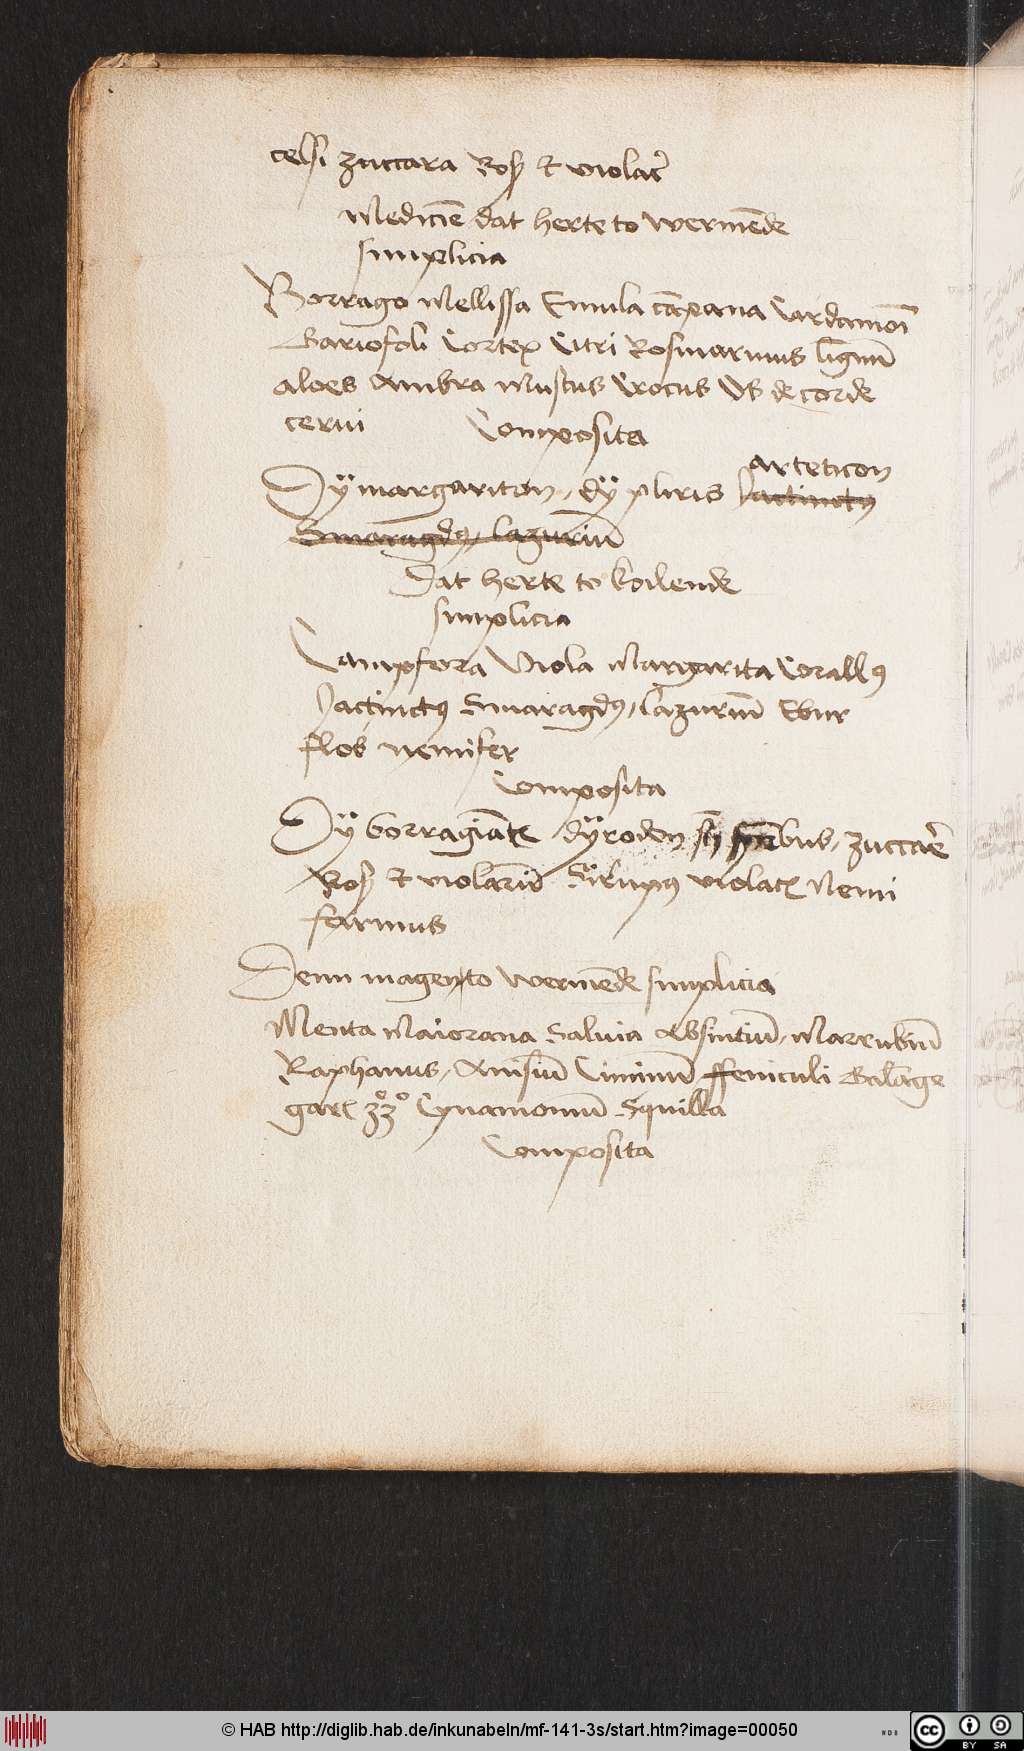 celsi zuccara Ros et violac̄
Medicīe dat herte to wermēde
simplicia
Borrago Mellissa Enula cāpana Cardamoī
Gariofoli Cortex Citri Rosmarinus lignū
aloes Ambra Muscus Crocus Os de corde
cerui Composita
Dÿ margariton, dÿ pliris arteticon Jactinctꝰ
Smaragdꝰ, lazuriū
Dat herte to kolende
simplicia
Campfera Viola Margarita Corallꝰ
Jactinctꝰ Smaragdꝰ, lazuriū Ebur
flos nenifer
Composita
Dÿ borragīate dÿrodon bus, zuccaē
Ros et violarū Sirupꝰ violac̄ Neni
farinus
Denn magen to wermēde simplicia
Menta Maiorana Saluia Absintiū, Marrubiū
Raphanus, Anisiū Ciminū ffeniculi Galāge
gar 33° Cynamomū Squilla
Composita
© HAB http://diglib.hab.de/inkunabeln/mf-141-3s/start.htm?image=00050
WDB
cc BY SA